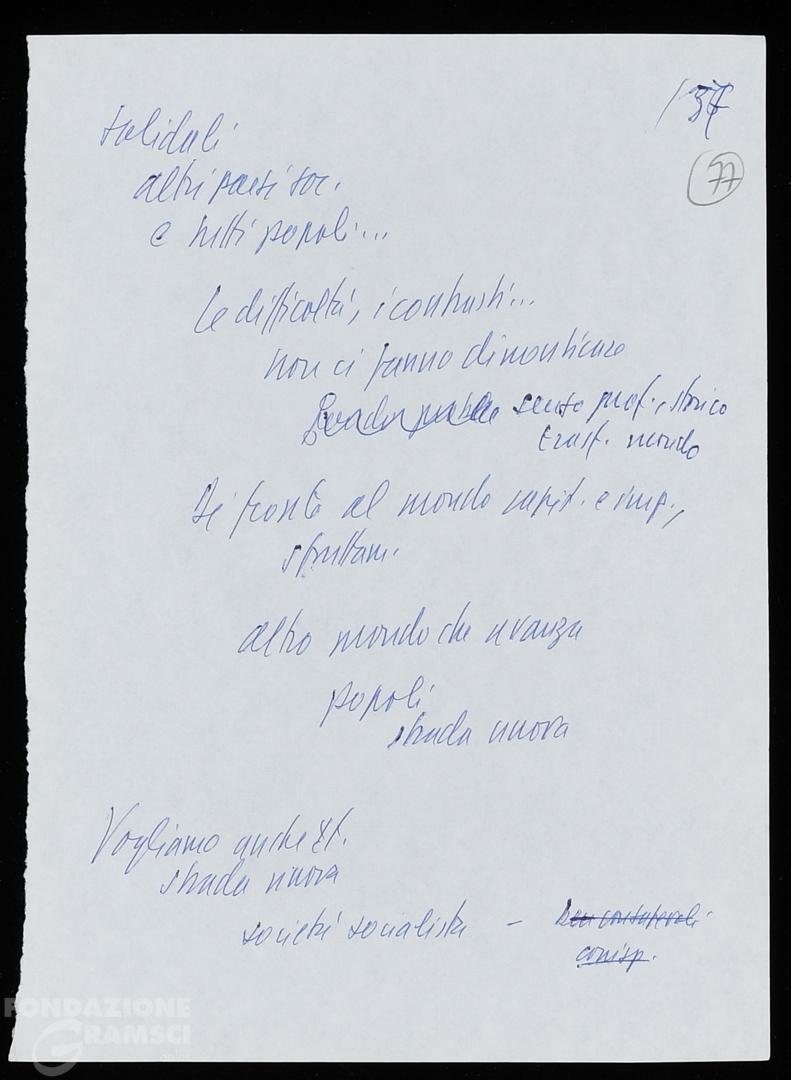 137
77
solidali
altri paesi soc.
e tutti popoli...
Le difficoltà, i contrasti...
non ci fanno dimenticare
senso prof., storico
trasf. mondo
Di fronte al mondo capit. e imp.,
sfruttam.
altro mondo che avanza
popoli
strada nuova
Vogliamo anche It.
strada nuova
società socialista - ben consapevoli
FONDAZIONE
GRAMSCI